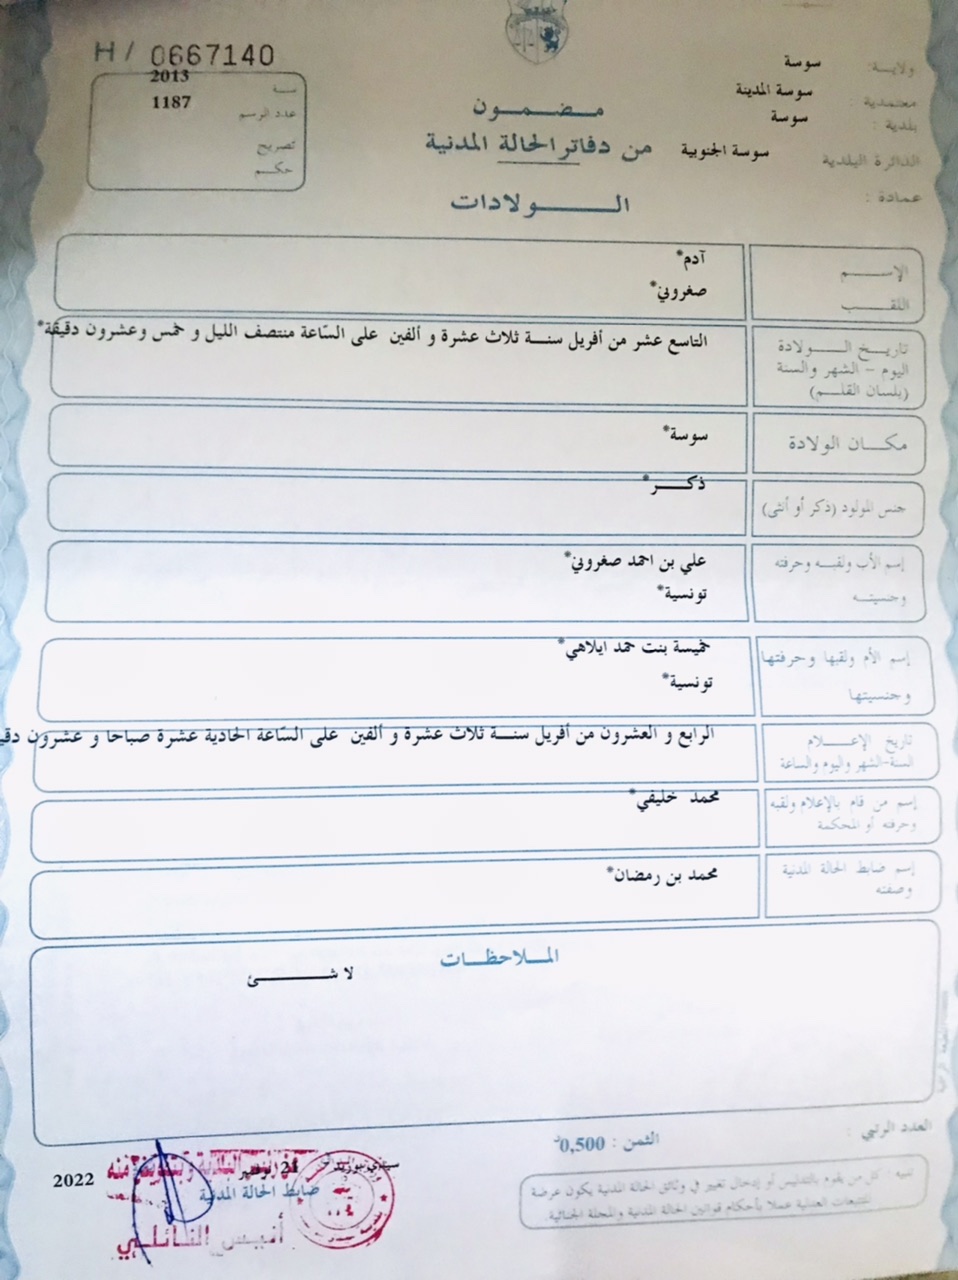 H / 0667140
ولاية: سوسة
معتمدية : سوسة المدينة
بلدية : سوسة
الدائرة البلدية سوسة الجنوبية
عمادة :
سنة 2013
عدد الرسم 1187
تصريح
حكم
مضمون
من دفاتر الحالة المدنية
الولادات
الإسم آدم*
اللقب صغروني*
تاريخ الولادة
اليوم - الشهر والسنة
(بلسان القلم)
التاسع عشر من أفريل سنة ثلاث عشرة و ألفين على السّاعة منتصف الليل و خمس وعشرون دقيقة*
مكان الولادة سوسة*
جنس المولود (ذكر أو أنثى) ذكر*
إسم الأب ولقبه وحرفته علي بن احمد صغروني*
وجنسيته تونسية*
إسم الأم ولقبها وحرفتها خميسة بنت حمد ايلاهي*
وجنسيتها تونسية*
تاريخ الإعلام
السنة-الشهر واليوم والساعة
الرابع و العشرون من أفريل سنة ثلاث عشرة و ألفين على السّاعة الحادية عشرة صباحا و عشرون
إسم من قام بالإعلام ولقبه محمد خليفي*
وحرفته أو المحكمة
إسم ضابط الحالة المدنية محمد بن رمضان*
وصفته
الملاحظات
لا شئ
العدد الرتبي :
الثمن : 0,500
تنبيه : كل من يقوم بالتدليس أو إدخال تغيير في وثائق الحالة المدنية يكون عرضة
للتتبعات العدلية عملا بأحكام قوانين الحالة المدنية والمجلة الجنائية.
سيدي بوزيد 21 نوفمبر 2022
عن رئيس البلدية وبتفويض منه
ضابط الحالة المدنية
أنيس النائلي